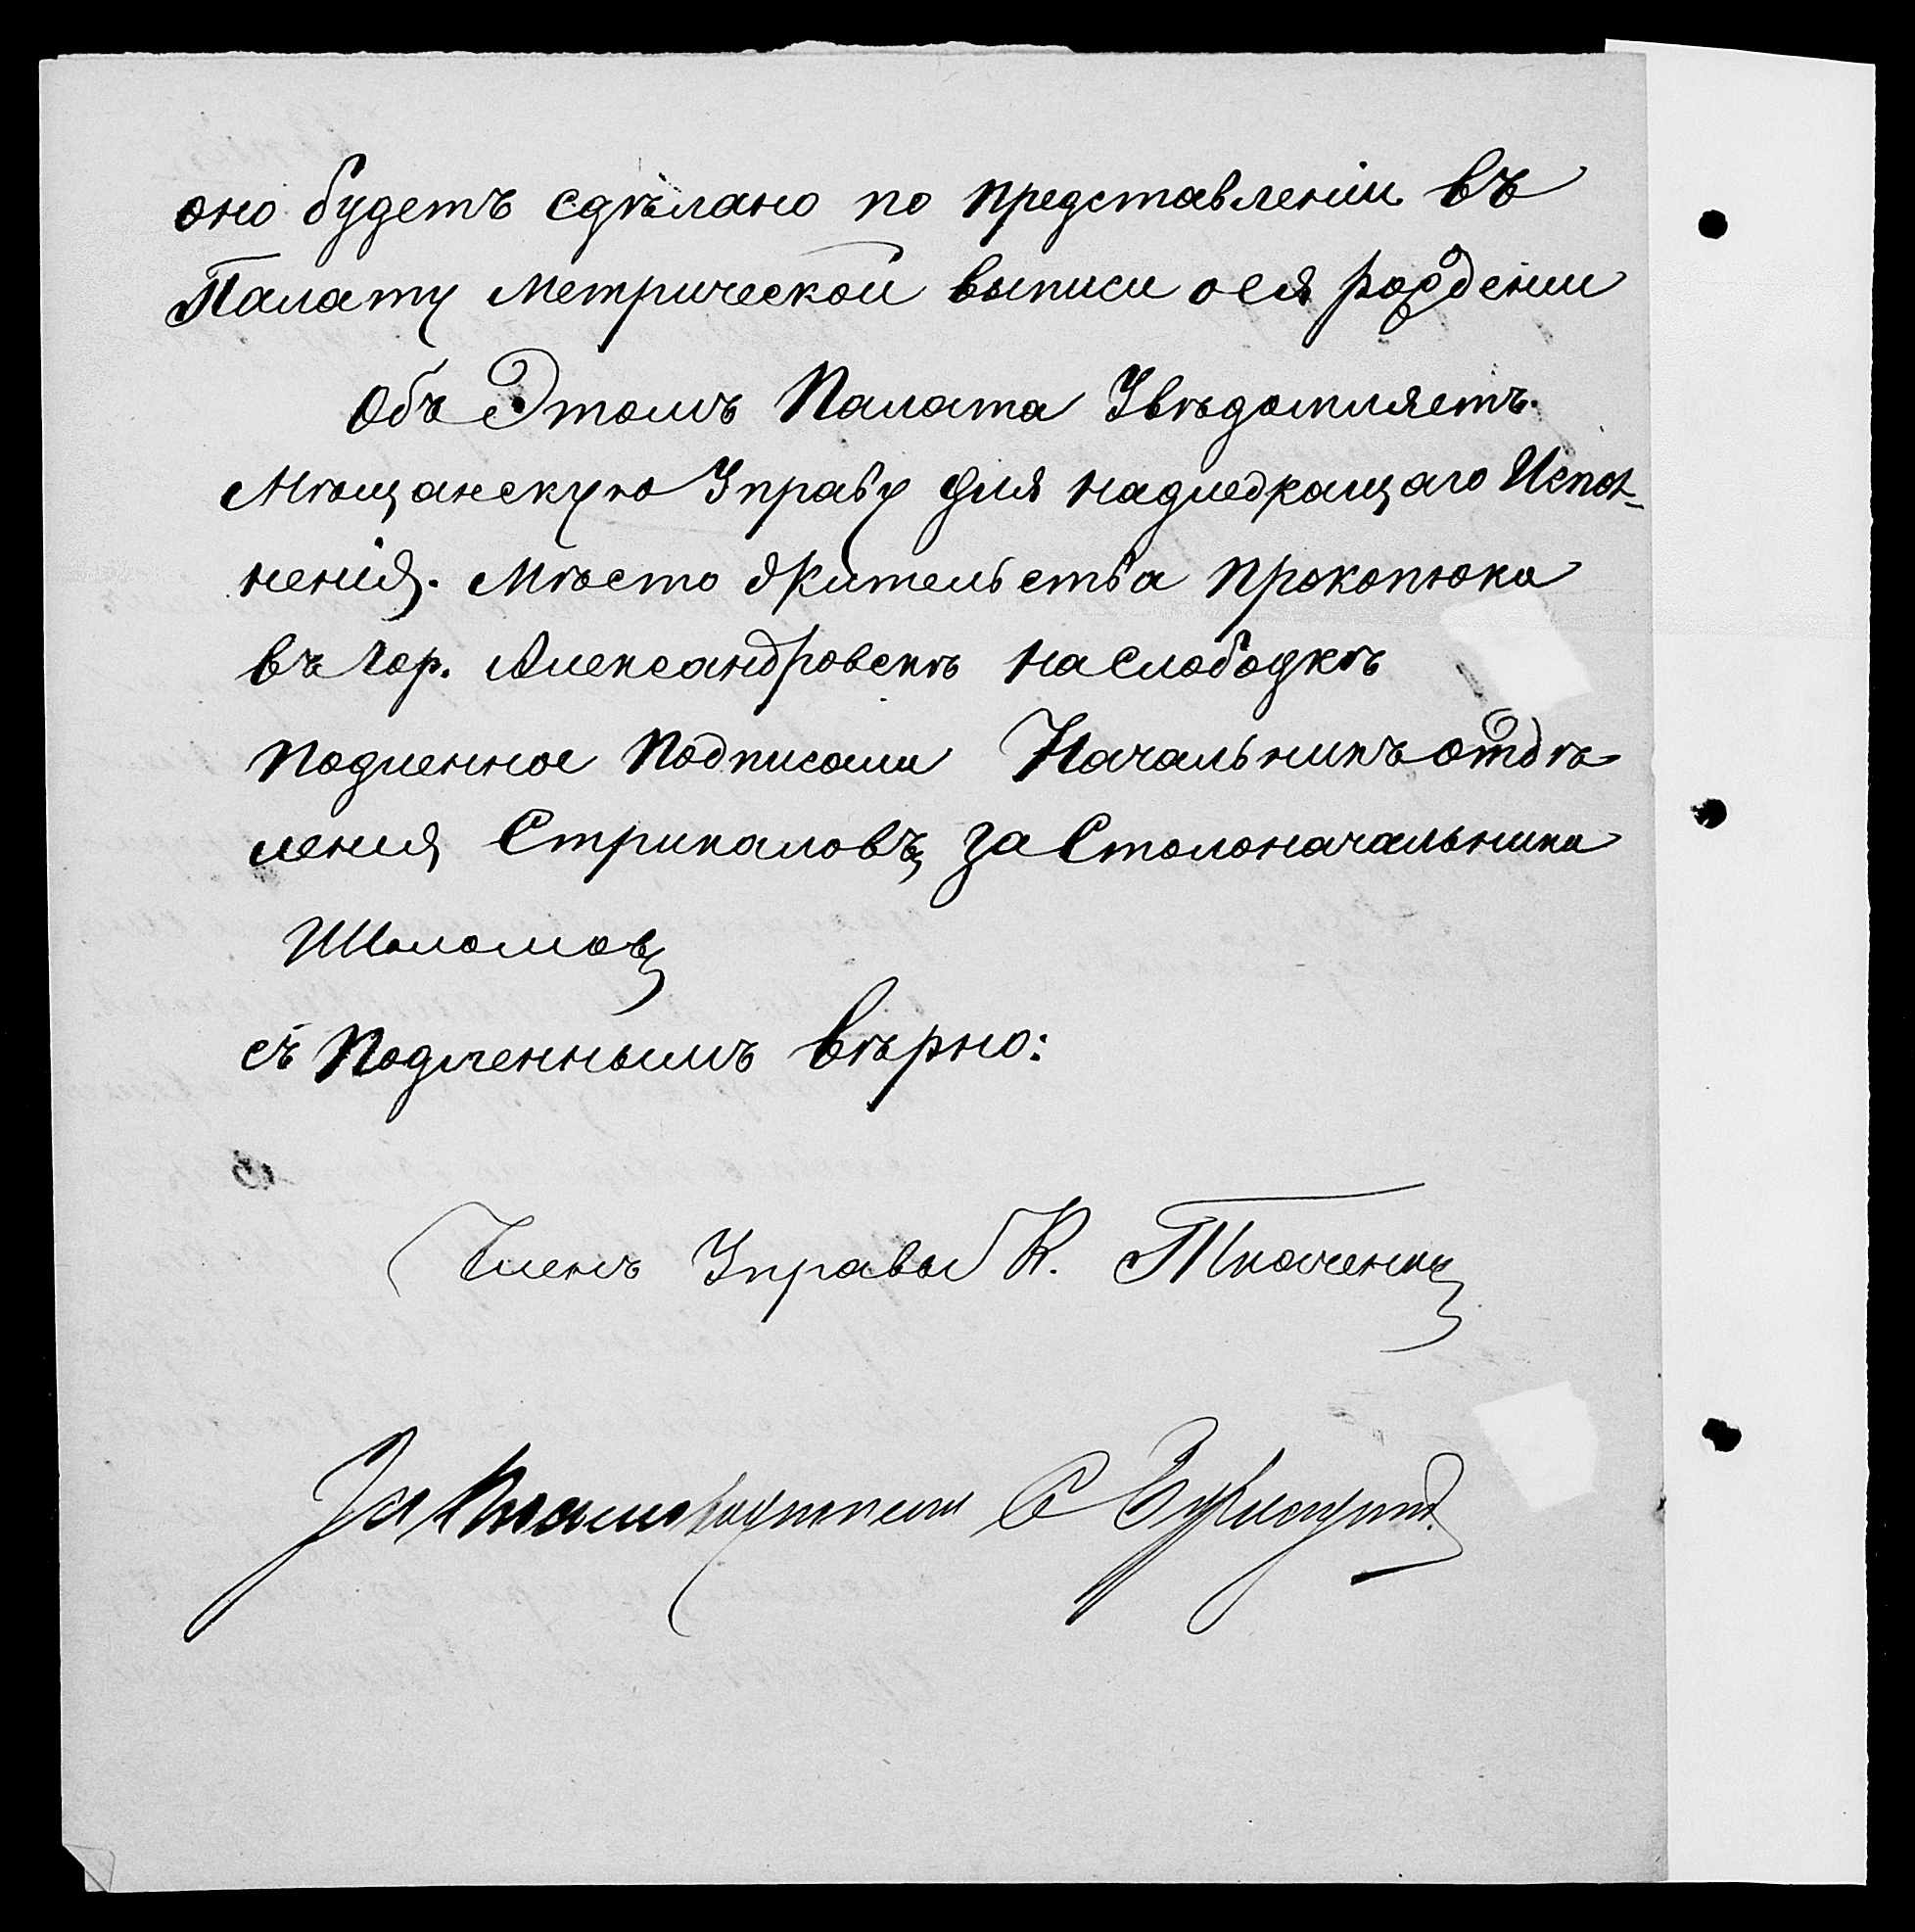 оно будетъ сдѣлано по представленіи въ
Палату метрической выписи о ея рожденіи
Объ Этомъ Палата Увѣдомляетъ
Мѣщанскую Управу для надлежащаго Испол-
ненія. Мѣсто жительства Прокопюка
въ гор. Александровскѣ на слободкѣ
Подленное Подписали Начальникъ отдѣ-
ления Стрикаловъ, за Столоначальника
Шоломовъ
съ Подленнымъ вѣрно:
Членъ Управы К. Ткаченко
За